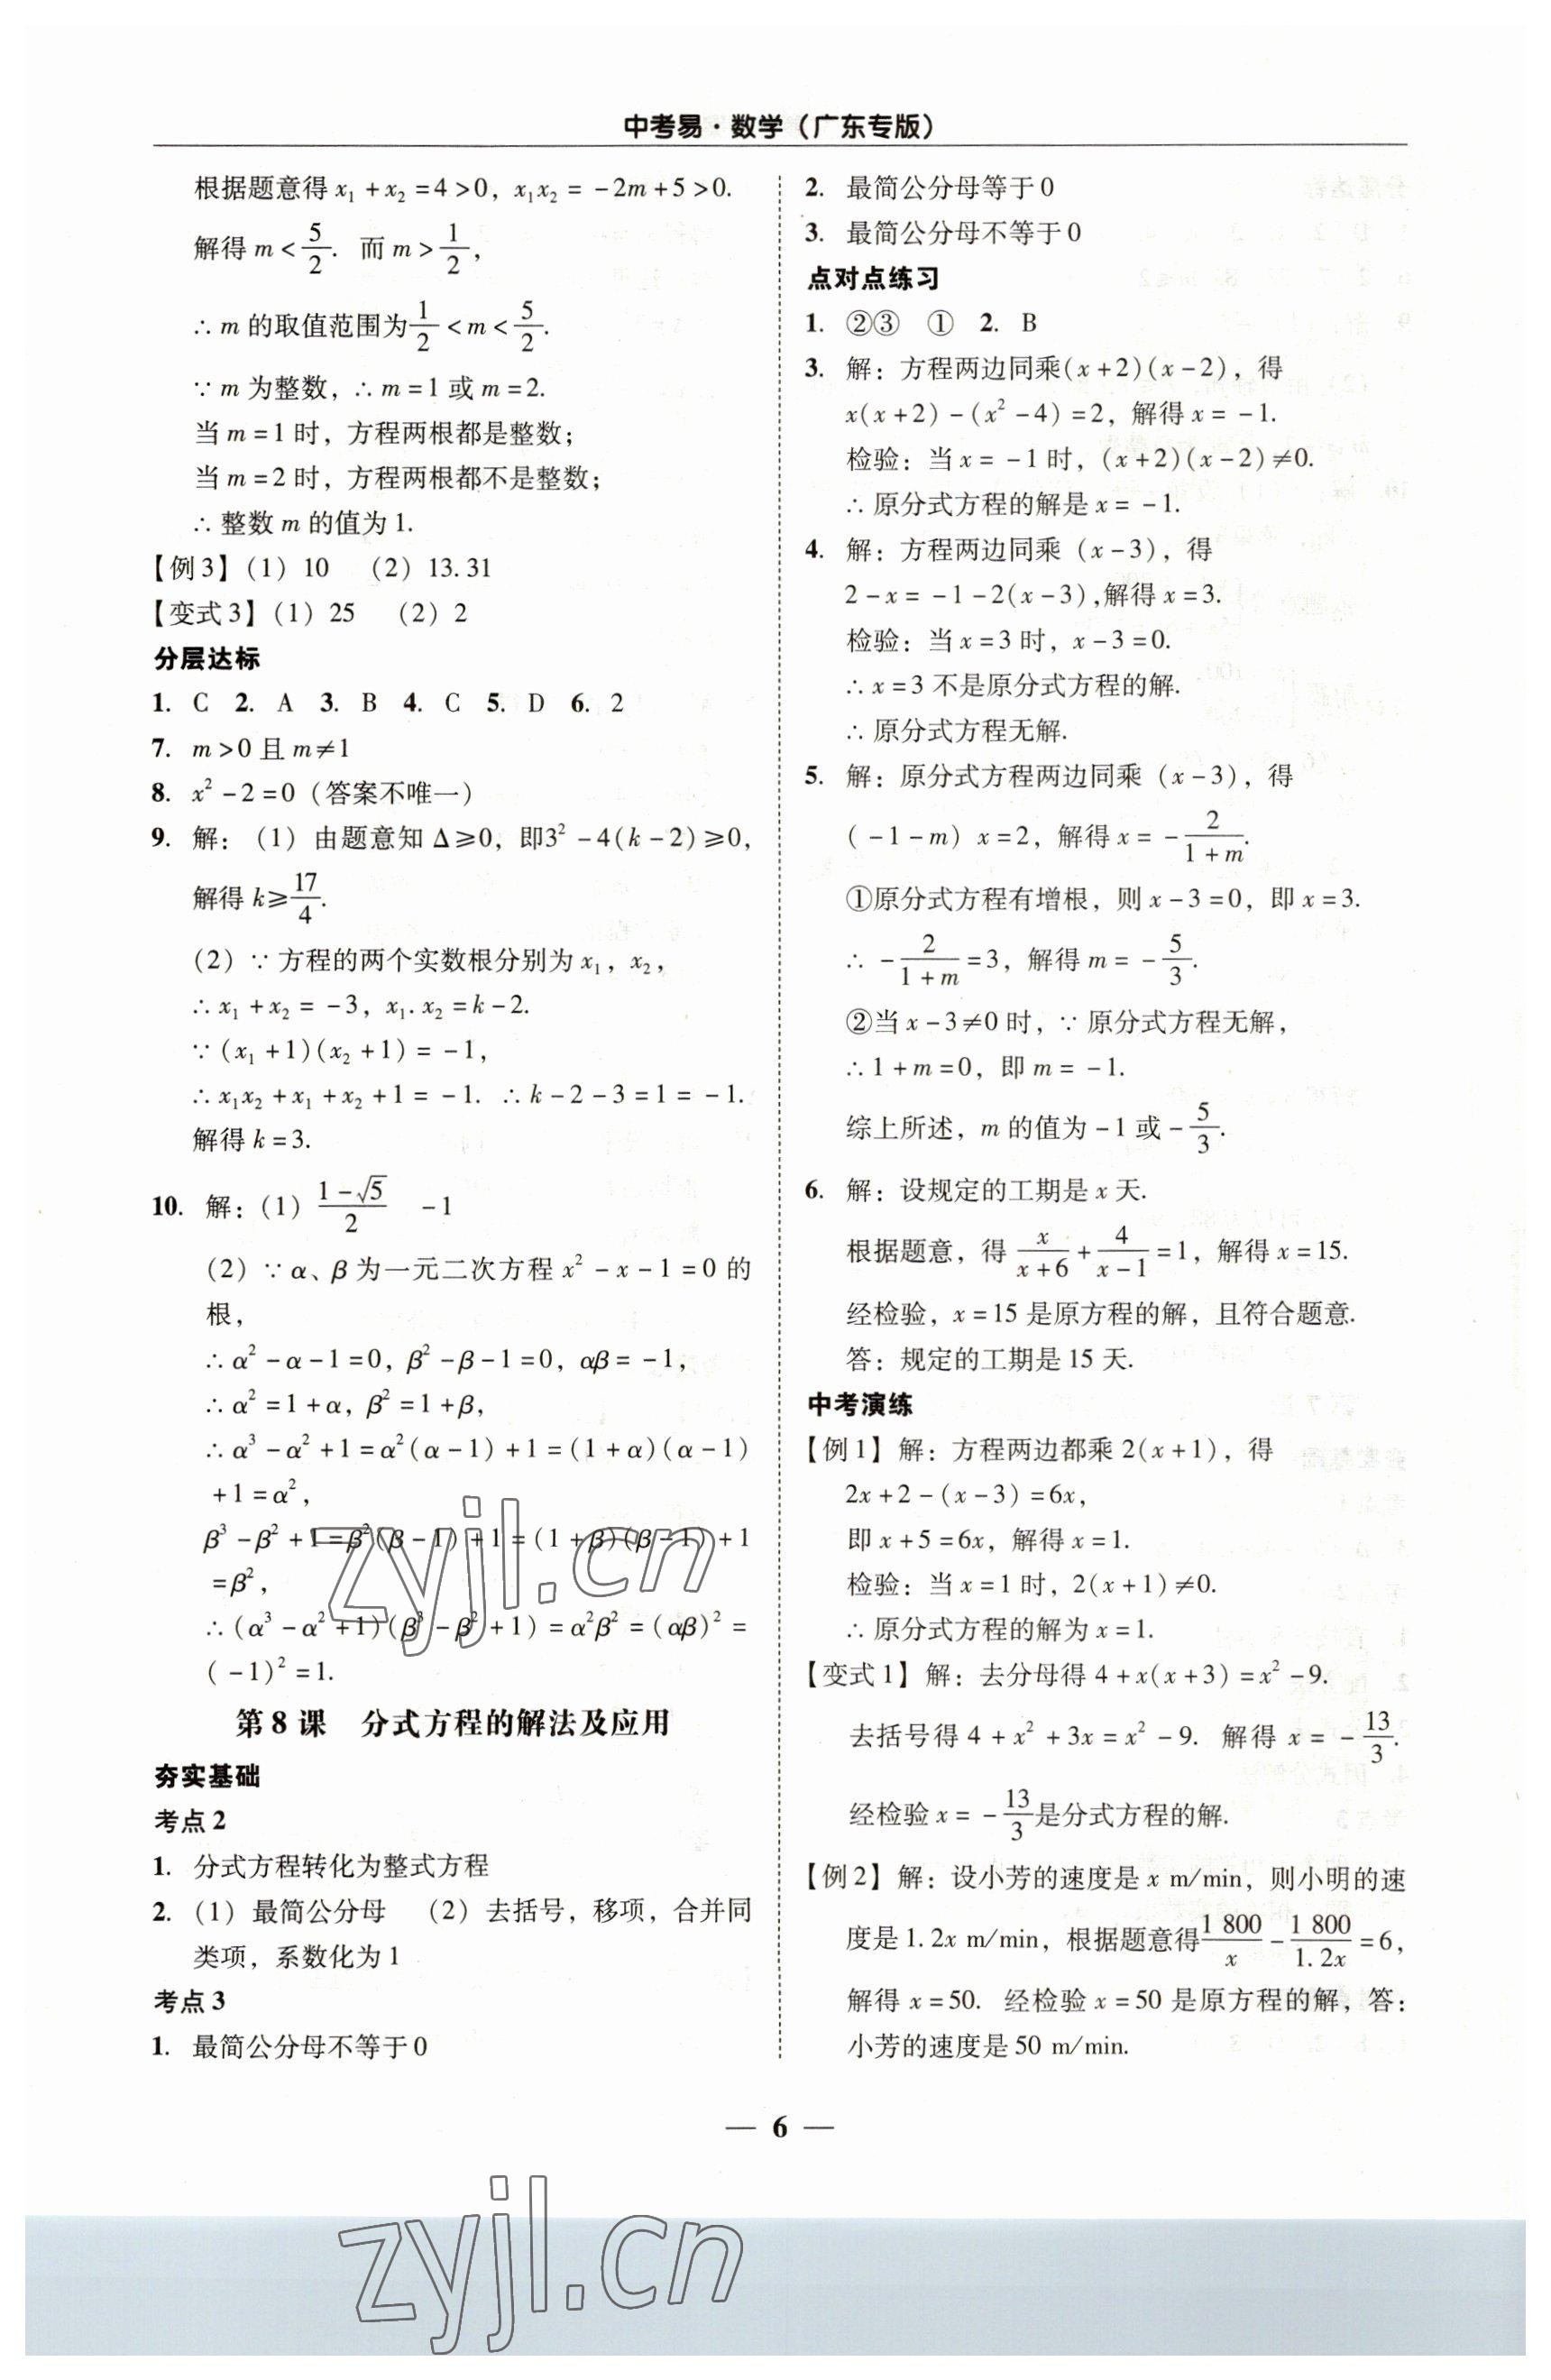 中考易·数学（广东专版）
根据题意得 x₁+x₂=4>0，x₁x₂=-2m+5>0.
解得 m<5/2. 而 m>1/2，
∴ m 的取值范围为1/2<m<5/2.
∵ m 为整数，∴ m=1 或 m=2.
当 m=1 时，方程两根都是整数；
当 m=2 时，方程两根都不是整数；
∴ 整数 m 的值为 1.
【例3】（1）10 （2）13.31
【变式3】（1）25 （2）2
分层达标
1. C 2. A 3. B 4. C 5. D 6. 2
7. m>0 且 m≠1
8. x²-2=0（答案不唯一）
9. 解：（1）由题意知 Δ≥0，即3²-4(k-2)≥0，
解得 k≥17/4.
（2）∵ 方程的两个实数根分别为 x₁，x₂，
∴ x₁+x₂=-3，x₁.x₂=k-2.
∵ (x₁+1)(x₂+1)=-1，
∴ x₁x₂+x₁+x₂+1=-1. ∴ k-2-3=1=-1.
解得 k=3.
10. 解：（1）(1-√5)/2 -1
（2）∵ α、β 为一元二次方程 x²-x-1=0 的
根，
∴ α²-α-1=0，β²-β-1=0，αβ=-1，
∴ α²=1+α，β²=1+β，
∴ α³-α²+1=α²(α-1)+1=(1+α)(α-1)
+1=α²，
β³-β²+1=β²(β-1)+1=(1+β)(β-1)+1
=β²，
∴ (α³-α²+1)(β³-β²+1)=α²β²=(αβ)²=
(-1)²=1.
第8课 分式方程的解法及应用
夯实基础
考点2
1. 分式方程转化为整式方程
2. （1）最简公分母 （2）去括号，移项，合并同
类项，系数化为1
考点3
1. 最简公分母不等于0
2. 最简公分母等于0
3. 最简公分母不等于0
点对点练习
1. ②③ ① 2. B
3. 解：方程两边同乘(x+2)(x-2)，得
x(x+2)-(x²-4)=2，解得 x=-1.
检验：当 x=-1 时，(x+2)(x-2)≠0.
∴ 原分式方程的解是 x=-1.
4. 解：方程两边同乘（x-3），得
2-x=-1-2(x-3),解得 x=3.
检验：当 x=3 时，x-3=0.
∴ x=3 不是原分式方程的解.
∴ 原分式方程无解.
5. 解：原分式方程两边同乘（x-3），得
（-1-m）x=2，解得 x=-2/(1+m).
①原分式方程有增根，则 x-3=0，即 x=3.
∴ -2/(1+m)=3，解得 m=-5/3.
②当 x-3≠0 时，∵ 原分式方程无解，
∴ 1+m=0，即 m=-1.
综上所述，m 的值为-1 或-5/3.
6. 解：设规定的工期是 x 天.
根据题意，得 x/(x+6)+4/(x-1)=1，解得 x=15.
经检验，x=15 是原方程的解，且符合题意.
答：规定的工期是 15 天.
中考演练
【例1】解：方程两边都乘 2(x+1)，得
2x+2-(x-3)=6x，
即 x+5=6x，解得 x=1.
检验：当 x=1 时，2(x+1)≠0.
∴ 原分式方程的解为 x=1.
【变式1】解：去分母得 4+x(x+3)=x²-9.
去括号得 4+x²+3x=x²-9. 解得 x=-13/3.
经检验 x=-13/3是分式方程的解.
【例2】解：设小芳的速度是 x m/min，则小明的速
度是 1.2x m/min，根据题意得1 800/x-1 800/1.2x=6，
解得 x=50. 经检验 x=50 是原方程的解，答：
小芳的速度是 50 m/min.
— 6 —
zyjl.cn
zyjl.cn